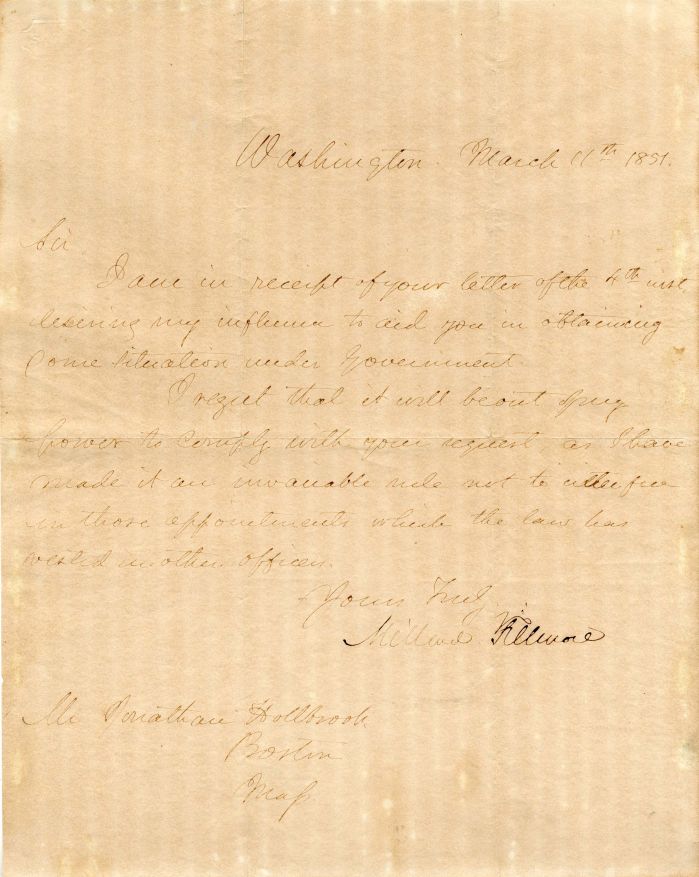 Washington. March 11th 1851.
Sir
I am in receipt of your letter of the 4th inst.
desiring my influence to aid you in obtaining
some situation under Government.
I regret that it will be out of my
power to comply with your request, as I have
made it an invariable rule not to interfere
in those appointments which the law has
vested in other officers.
Yours Truly
Millard Fillmore
Mr Jonathan Hollbrook
Boston
Mass